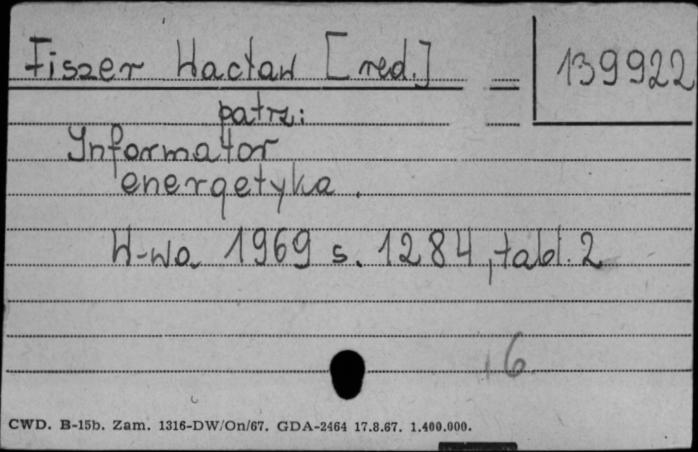 Fiszer Wacław [red.] 139922
patrz:
Informator
energetyka.
W-wa 1969 s. 1284, tabl. 2
6
CWD. B-15b. Zam. 1316-DW/On/67. GDA-2464 17.8.67. 1.400.000.